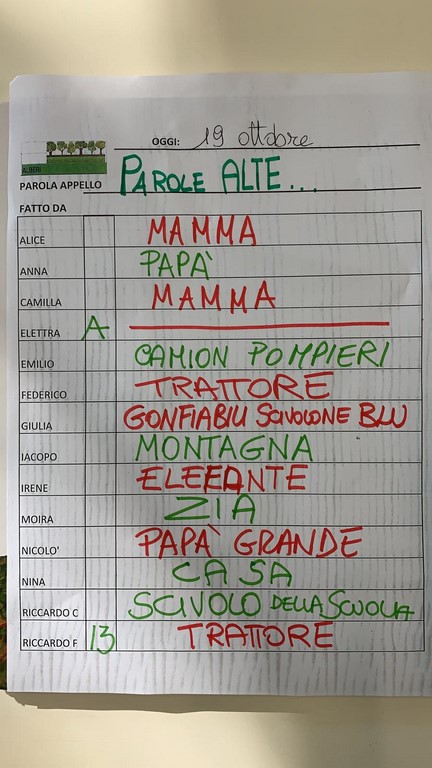 OGGI: 19 ottobre
ALBERI
PAROLA APPELLO PAROLE ALTE...
FATTO DA
ALICE MAMMA
ANNA PAPÀ
CAMILLA MAMMA
ELETTRA A
EMILIO CAMION POMPIERI
FEDERICO TRATTORE
GIULIA GONFIABILI SCIVOLONE BLU
IACOPO MONTAGNA
IRENE ELEFANTE
MOIRA ZIA
NICOLO' PAPÀ GRANDE
NINA CASA
RICCARDO C SCIVOLO DELLA SCUOLA
RICCARDO F 13 TRATTORE